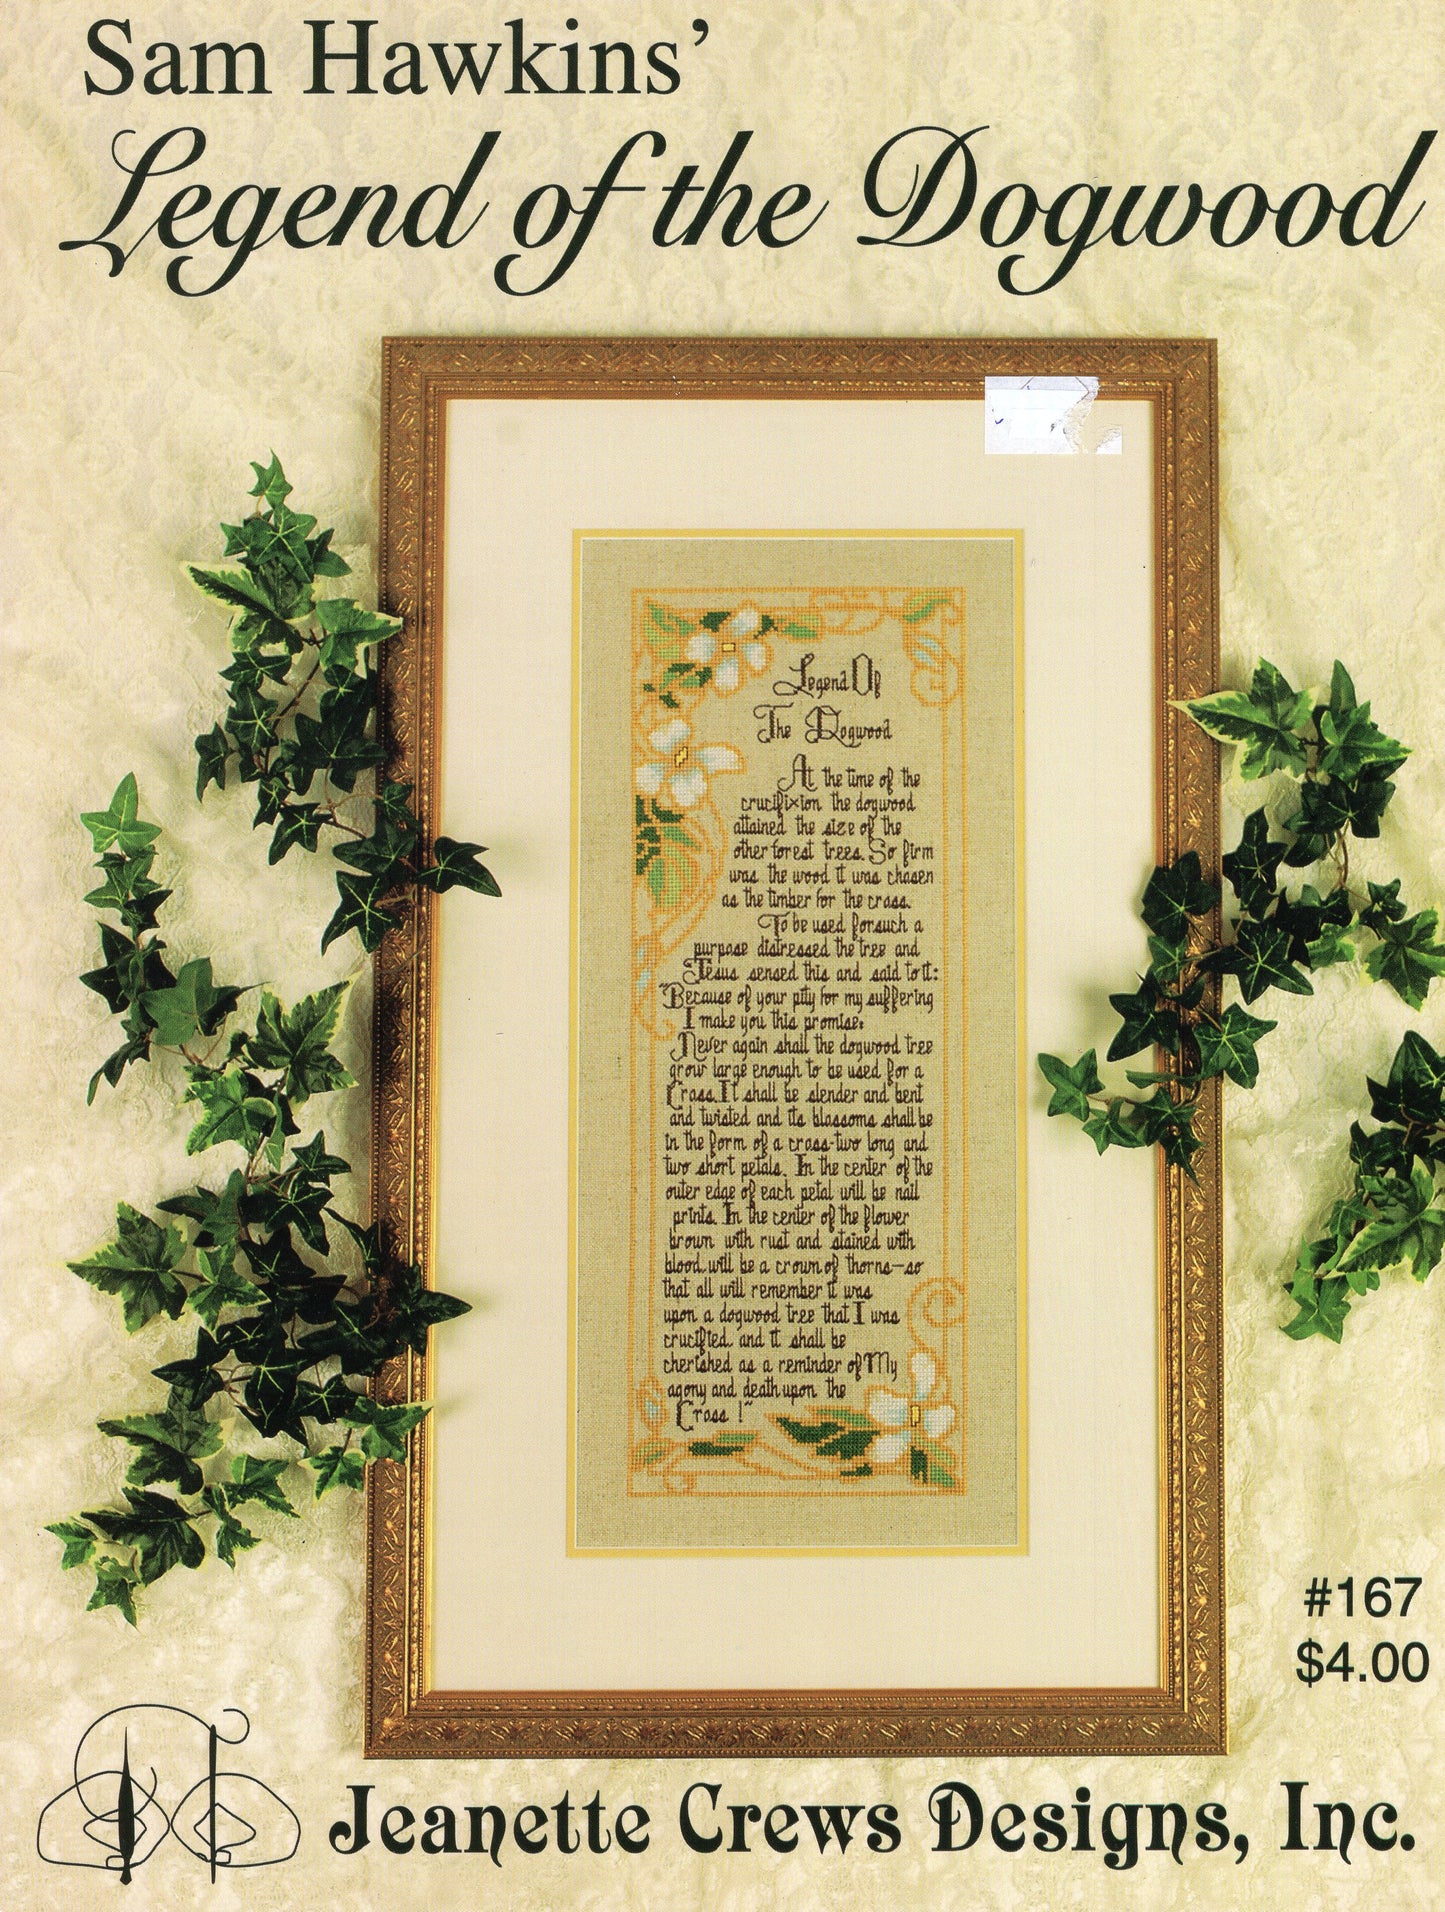 Sam Hawkins'
Legend of the Dogwood
Legend Of
The Dogwood
At the time of the
crucifixion the dogwood
attained the size of the
other forest trees. So firm
was the wood it was chosen
as the timber for the cross.
To be used for such a
purpose distressed the tree and
Jesus sensed this and said to it:
"Because of your pity for my suffering
I make you this promise:
Never again shall the dogwood tree
grow large enough to be used for a
Cross. It shall be slender and bent
and twisted and its blossoms shall be
in the form of a cross-two long and
two short petals. In the center of the
outer edge of each petal will be nail
prints. In the center of the flower
brown with rust and stained with
blood will be a crown of thorns—so
that all will remember it was
upon a dogwood tree that I was
crucified and it shall be
cherished as a reminder of My
agony and death upon the
Cross !"
#167
$4.00
Jeanette Crews Designs, Inc.